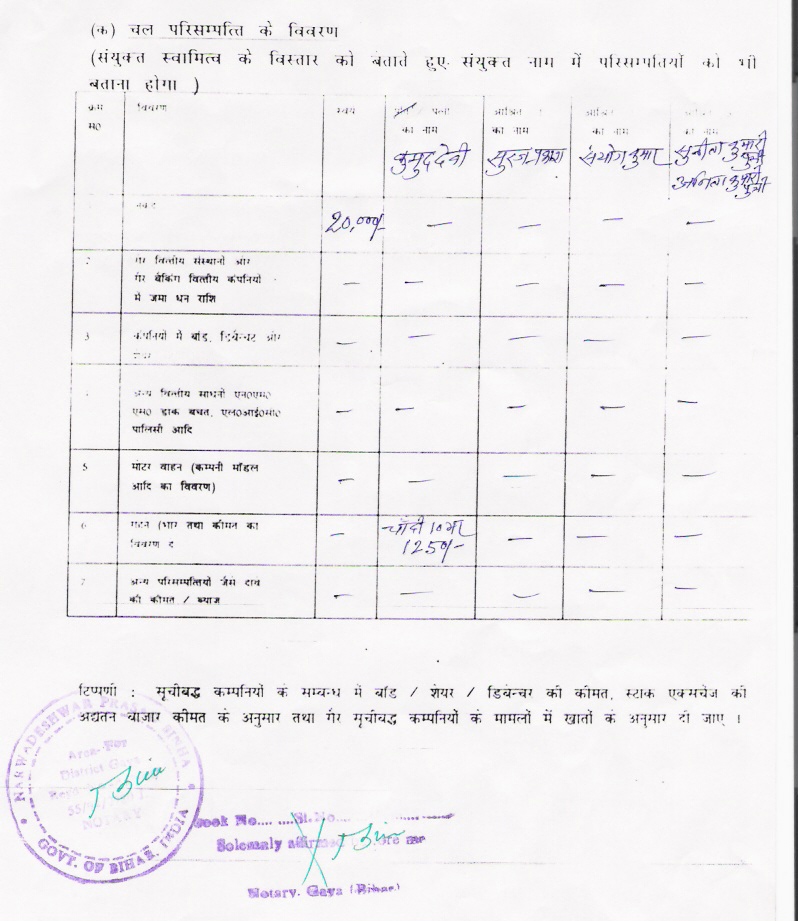 (क) चल परिसम्पत्ति के विवरण
(संयुक्त स्वामित्व के विस्तार को बताते हुए संयुक्त नाम में परिसम्पतियों को भी
बताना होगा )
क्रम विवरण स्वयं पत्नी आश्रित आश्रित
सं0 का नाम का नाम का नाम का नाम
कुमुद देवी सुरज प्रकाश संयोग कुमार सुनीला कुमारी पुत्री
अनिला कुमारी पुत्री
नकद 20,000/- — — — —
2 गैर वित्तीय संस्थानों और
गैर बैंकिंग वित्तीय कंपनियों — — — — —
में जमा धन राशि
3 कंपनियों में बांड, डिबेन्चर और — — — — —
अन्य वित्तीय साधनों एन0एस0
एस0 डाक बचत, एल0आई0सी0 — — — — —
पालिसी आदि
5 मोटर वाहन (कम्पनी मॉडल — — — — —
आदि का विवरण)
6 गहने (भार तथा कीमत का — चाँदी 10 भर — — —
विवरण दे 1250/-
7 अन्य परिसम्पत्तियों जैसे दाव — — — — —
की कीमत / ब्याज
टिप्पणी : सूचीबद्ध कम्पनियों के सम्बन्ध में बांड / शेयर / डिबेन्चर की कीमत, स्टाक एक्सचेंज की
अद्यतन बाजार कीमत के अनुसार तथा गैर सूचीबद्ध कम्पनियों के मामलों में खातों के अनुसार दी जाए ।
NARWADESHWAR PRASAD SINHA
Area- For
District Gaya
NOTARY
GOVT. OF BIHAR, INDIA
Book No..... ....Sl.No....
Solemnly affirmed before me
Notary. Gaya (Bihar)